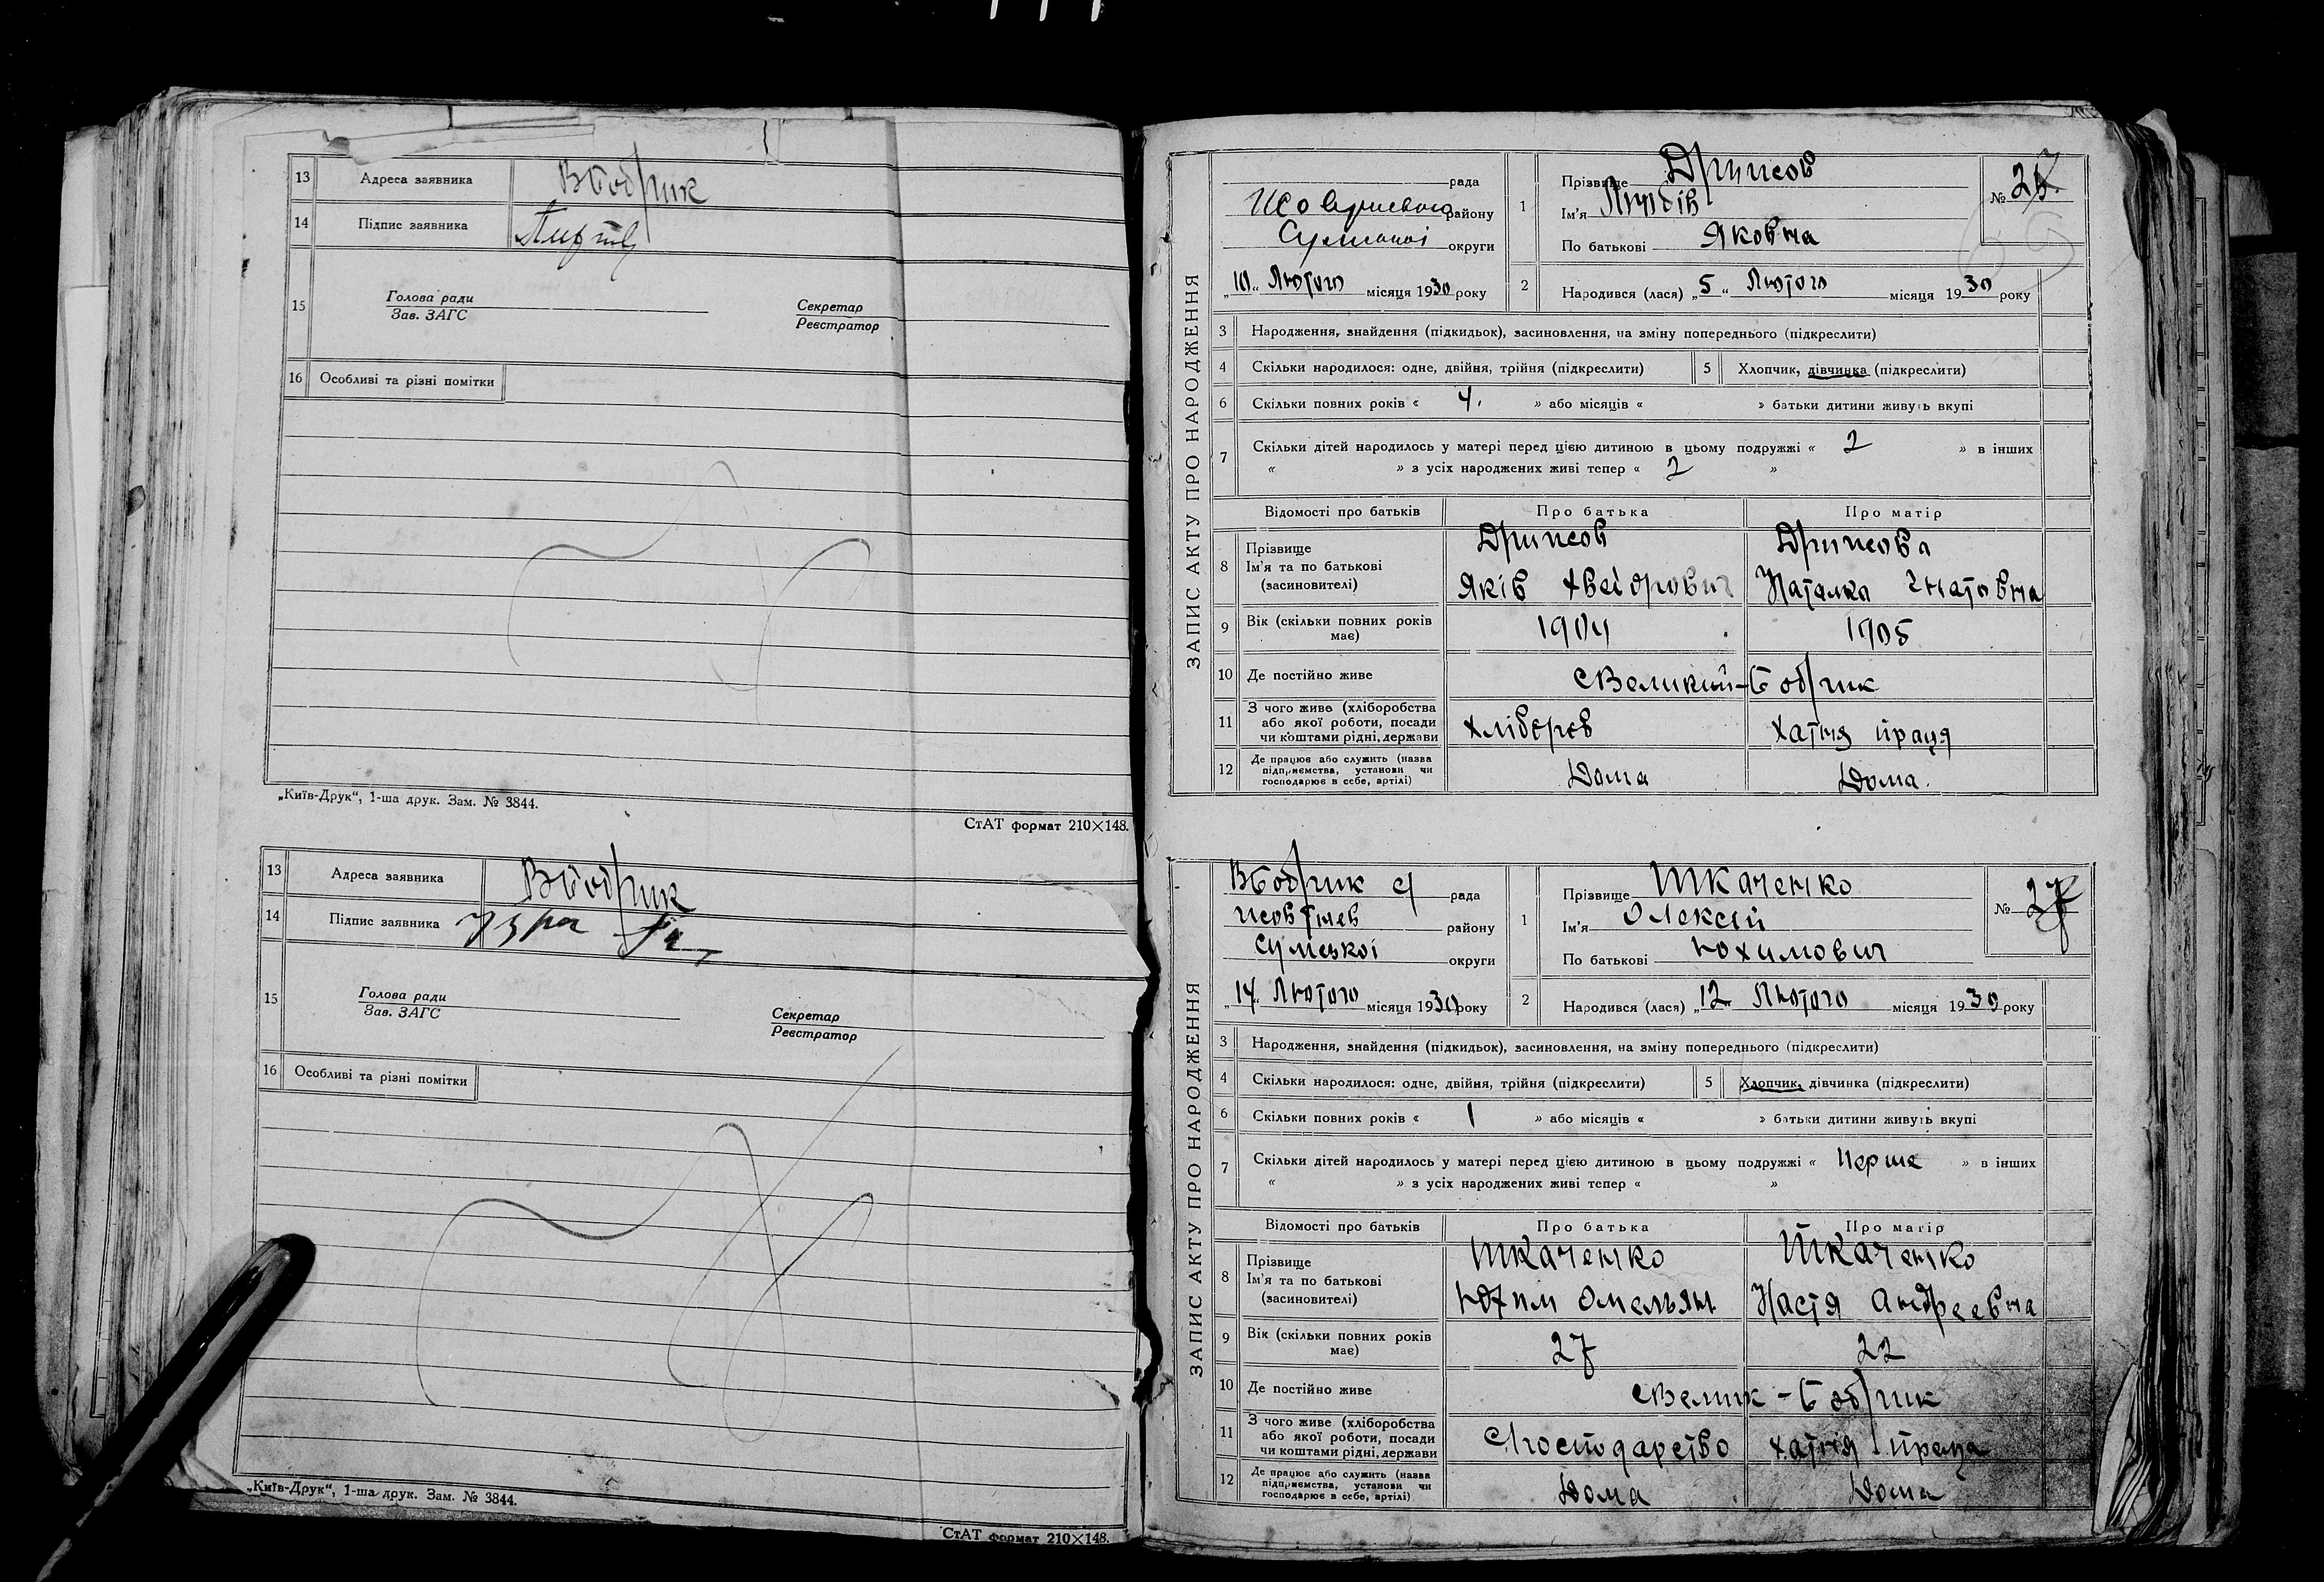 13 Адреса заявника ВБобрик
14 Підпис заявника
15 Голова ради
Зав. ЗАГС
Секретар
Реєстратор
16 Особливі та різні помітки
„Київ-Друк“, 1-ша друк. Зам. № 3844.
СтАТ формат 210×148.
13 Адреса заявника ВБобрик
14 Підпис заявника
15 Голова ради
Зав. ЗАГС
Секретар
Реєстратор
16 Особливі та різні помітки
„Київ-Друк“, 1-ша друк. Зам. № 3844.
СтАТ формат 210×148.
ЗАПИС АКТУ ПРО НАРОДЖЕННЯ
рада
району
округи
„10“ Лютого місяця 1930 року
1 Прізвище
Ім'я Любів
По батькові Яковна
№
2 Народився (лася) „5“ Лютого місяця 1930 року
3 Народження, знайдення (підкидьок), засиновлення, на зміну попереднього (підкреслити)
4 Скільки народилося: одне, двійня, трійня (підкреслити)
5 Хлопчик, дівчинка (підкреслити)
6 Скільки повних років « 4. » або місяців « » батьки дитини живуть вкупі
7 Скільки дітей народилось у матері перед цією дитиною в цьому подружжі « 2 » в інших
« » з усіх народжених живі тепер « 2 »
Відомості про батьків Про батька Про матір
8 Прізвище
Ім'я та по батькові
(засиновителі)
Яків Хведрович
Наталка Гнатовна
9 Вік (скільки повних років має) 1904 1905
10 Де постійно живе с Великий-Бобрик
11 З чого живе (хліборобства
або якої роботи, посади
чи коштами рідні, держави
хатня праця
12 Де працює або служить (назва
підприємства, установи чи
господарює в себе, артілі)
Дома Дома.
ЗАПИС АКТУ ПРО НАРОДЖЕННЯ
ВБобрик с/ рада
району
Сумської округи
„14“ Лютого місяця 1930 року
1 Прізвище Ткаченко
Ім'я Олексій
По батькові Юхимович
№ 27
2 Народився (лася) „12 Лютого місяця 1930 року
3 Народження, знайдення (підкидьок), засиновлення, на зміну попереднього (підкреслити)
4 Скільки народилося: одне, двійня, трійня (підкреслити)
5 Хлопчик, дівчинка (підкреслити)
6 Скільки повних років « 1 » або місяців « » батьки дитини живуть вкупі
7 Скільки дітей народилось у матері перед цією дитиною в цьому подружжі « перше » в інших
« » з усіх народжених живі тепер « »
Відомості про батьків Про батька Про матір
8 Прізвище
Ім'я та по батькові
(засиновителі)
Ткаченко Ткаченко
Юхим Омельян Настя Андреевна
9 Вік (скільки повних років має) 27 22
10 Де постійно живе с Велик-Бобрик
11 З чого живе (хліборобства
або якої роботи, посади
чи коштами рідні, держави
господарство хатня праця
12 Де працює або служить (назва
підприємства, установи чи
господарює в себе, артілі)
Дома Дома